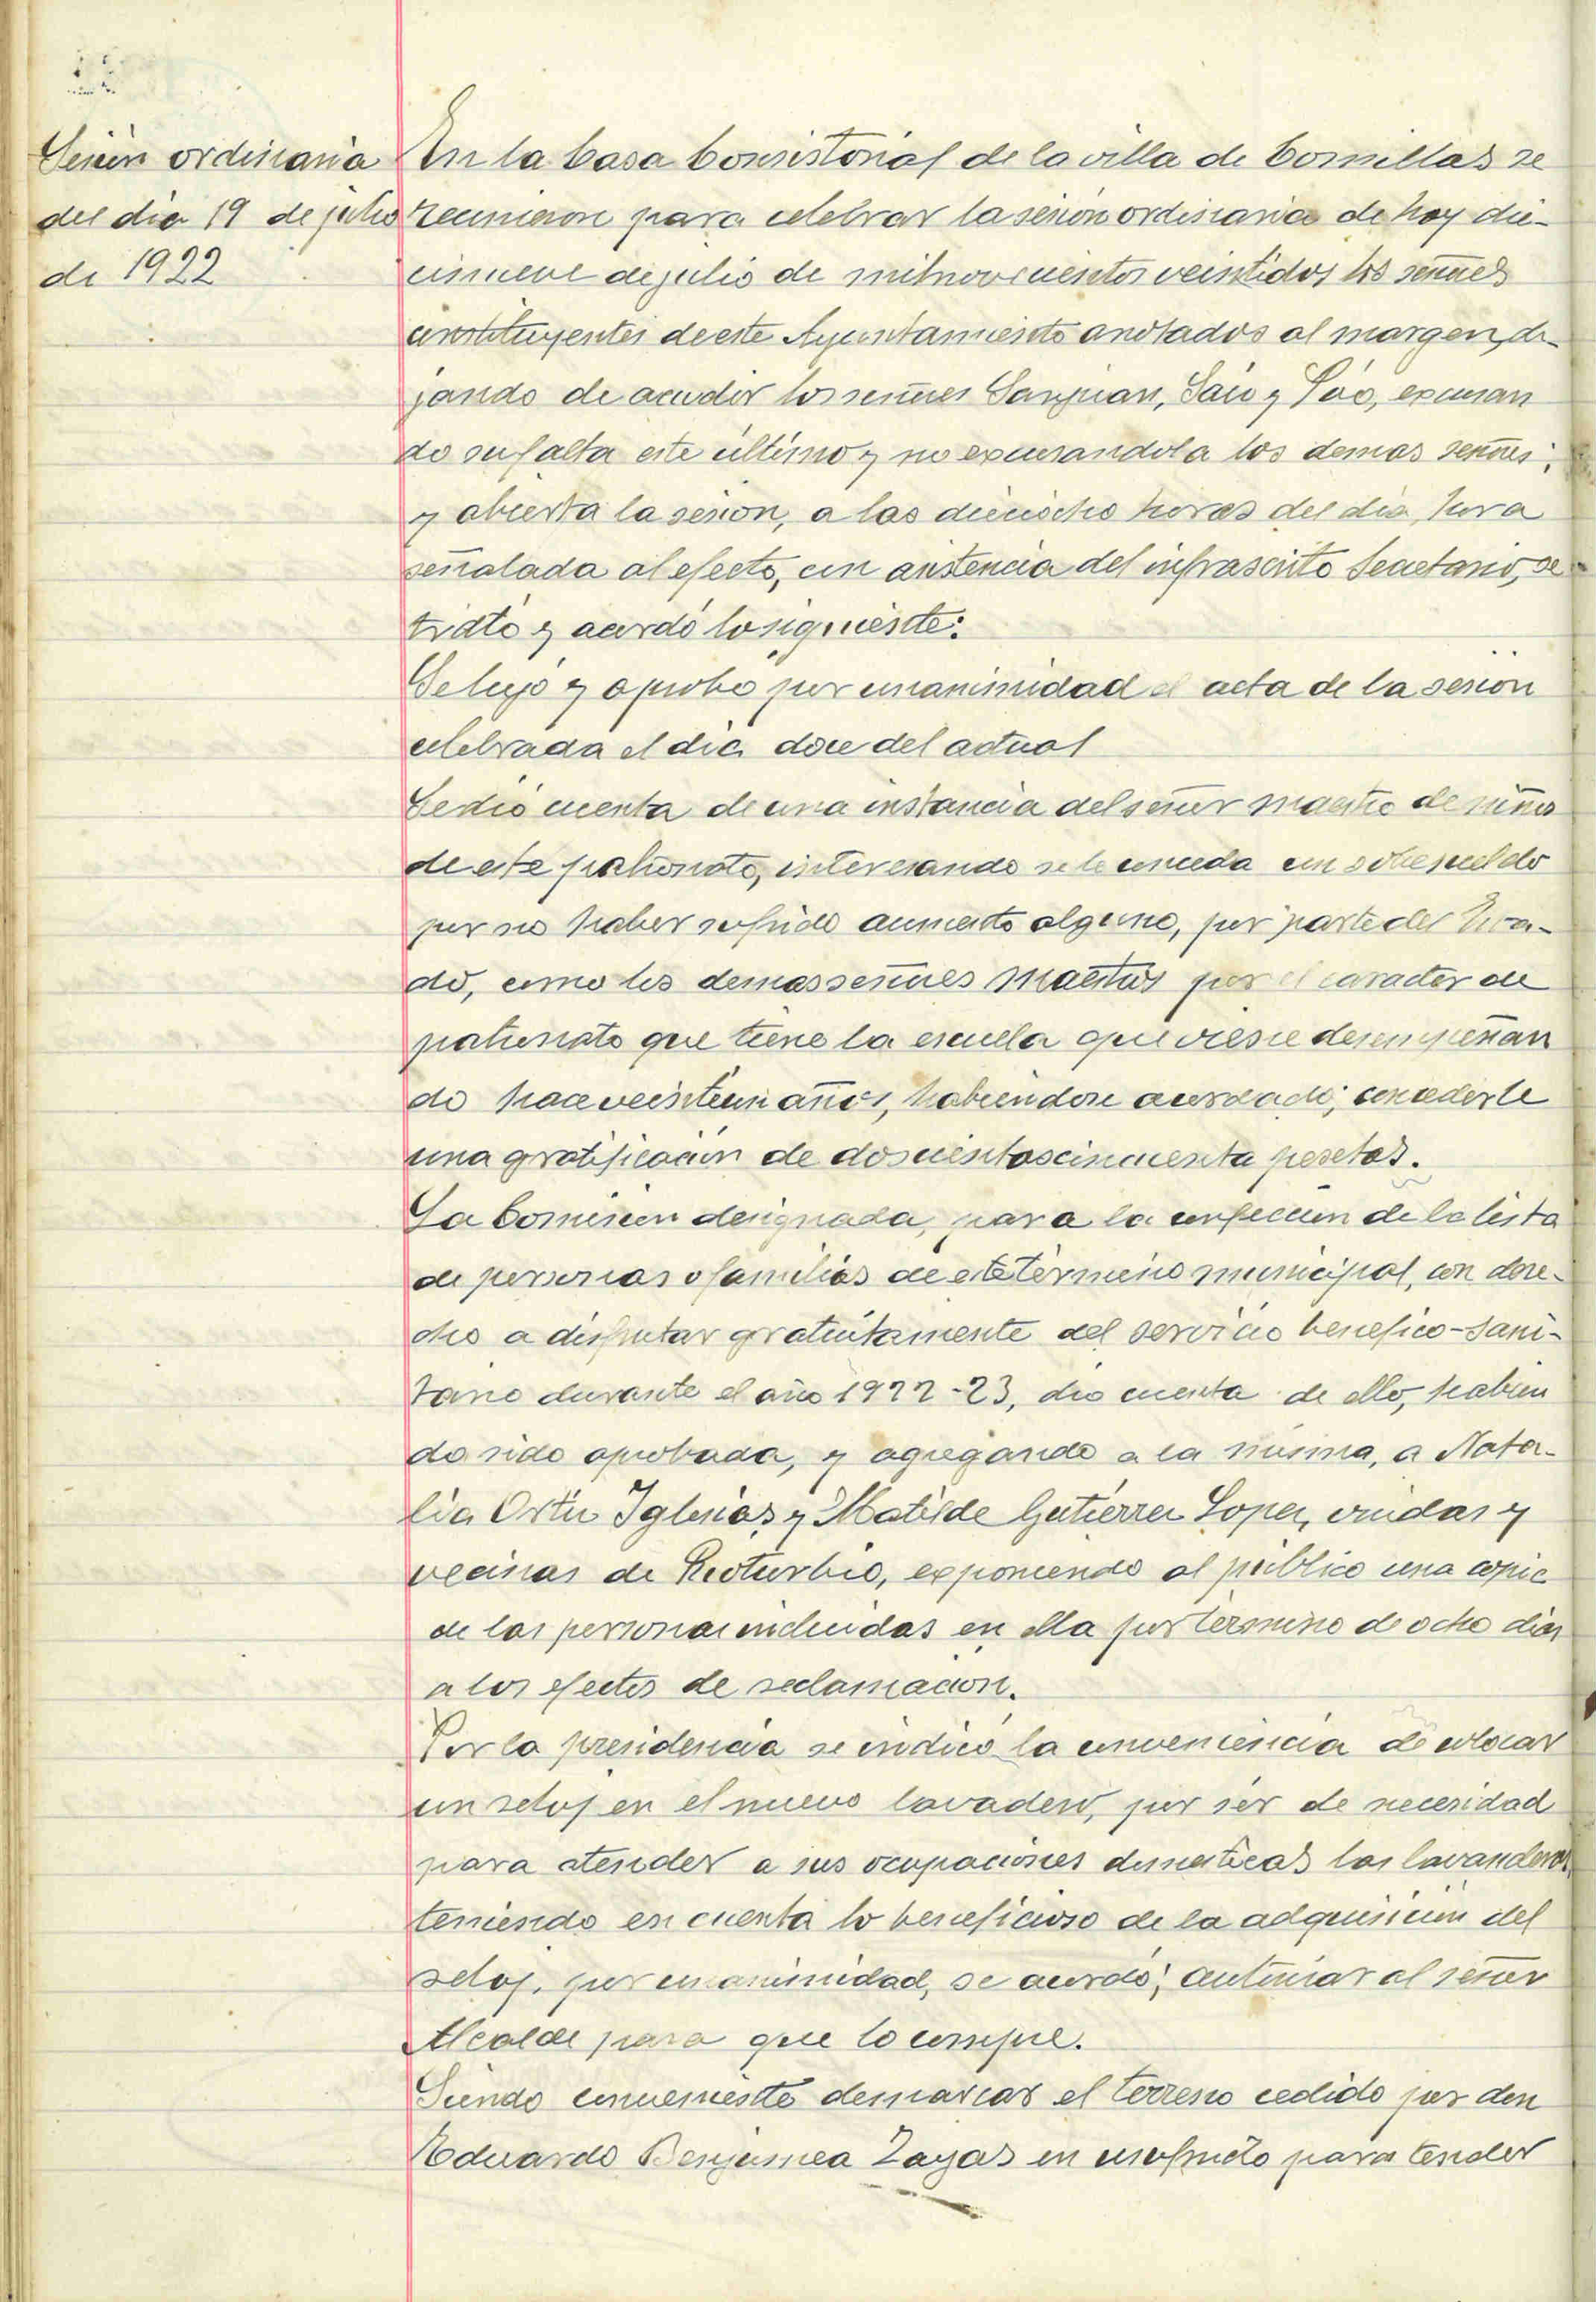 Sesión ordinaria
del dia 19 de julio
de 1922
En la Casa Consistorial de la villa de Comillas se
reunieron para celebrar la sesión ordinaria de hoy die-
cinueve de julio de mil novecientos veintidos los señores
constituyentes de este Ayuntamiento anotados al margen, de-
jando de acudir los señores Sanjuan, Saiz y Póo, excusan
do su falta este último y no excusandola los demas señores;
y abierta la sesion, a las dieciocho horas del dia, hora
señalada al efecto, con asistencia del infrascrito Secretario, se
trató y acordó lo siguiente:
Se leyó y aprobo por unanimidad el acta de la sesion
celebrada el dia doce del actual
Se dió cuenta de una instancia del señor maestro de niños
de este patronato, interesando se le conceda un sobresueldo
por no haber sufrido aumento alguno, por parte del Esta-
do, como los demas señores Maestros por el caracter de
patronato que tiene la escuela que viene desempeñan
do hace veintiun años, habiendose acordado; concederle
una gratificación de doscientas cincuenta pesetas.
La Comision designada, para la confección de la lista
de personas o familias de este término municipal, con dere-
cho a disfrutar gratuitamente del servicio benefico-sani-
tario durante el año 1922-23, dio cuenta de ello, habien
do sido aprobada, y agregando a la misma, a Nata-
lia Ortiz Iglesias y Matilde Gutierrez Lopez, viudas y
vecinas de Rioturbio, exponiendo al público una copia
de las personas incluidas en ella por termino de ocho dias
a los efectos de reclamacion.
Por la presidencia se indicó la conveniencia de colocar
un reloj en el nuevo lavadero, por ser de necesidad
para atender a sus ocupaciones domesticas las lavanderas
teniendo en cuenta lo beneficioso de la adquisicion del
reloj, por unanimidad, se acordó; autorizar al señor
Alcalde para que lo compre.
Siendo conveniente demarcar el terreno cedido por don
Eduardo Benjumea Zayas en usofructo para tender